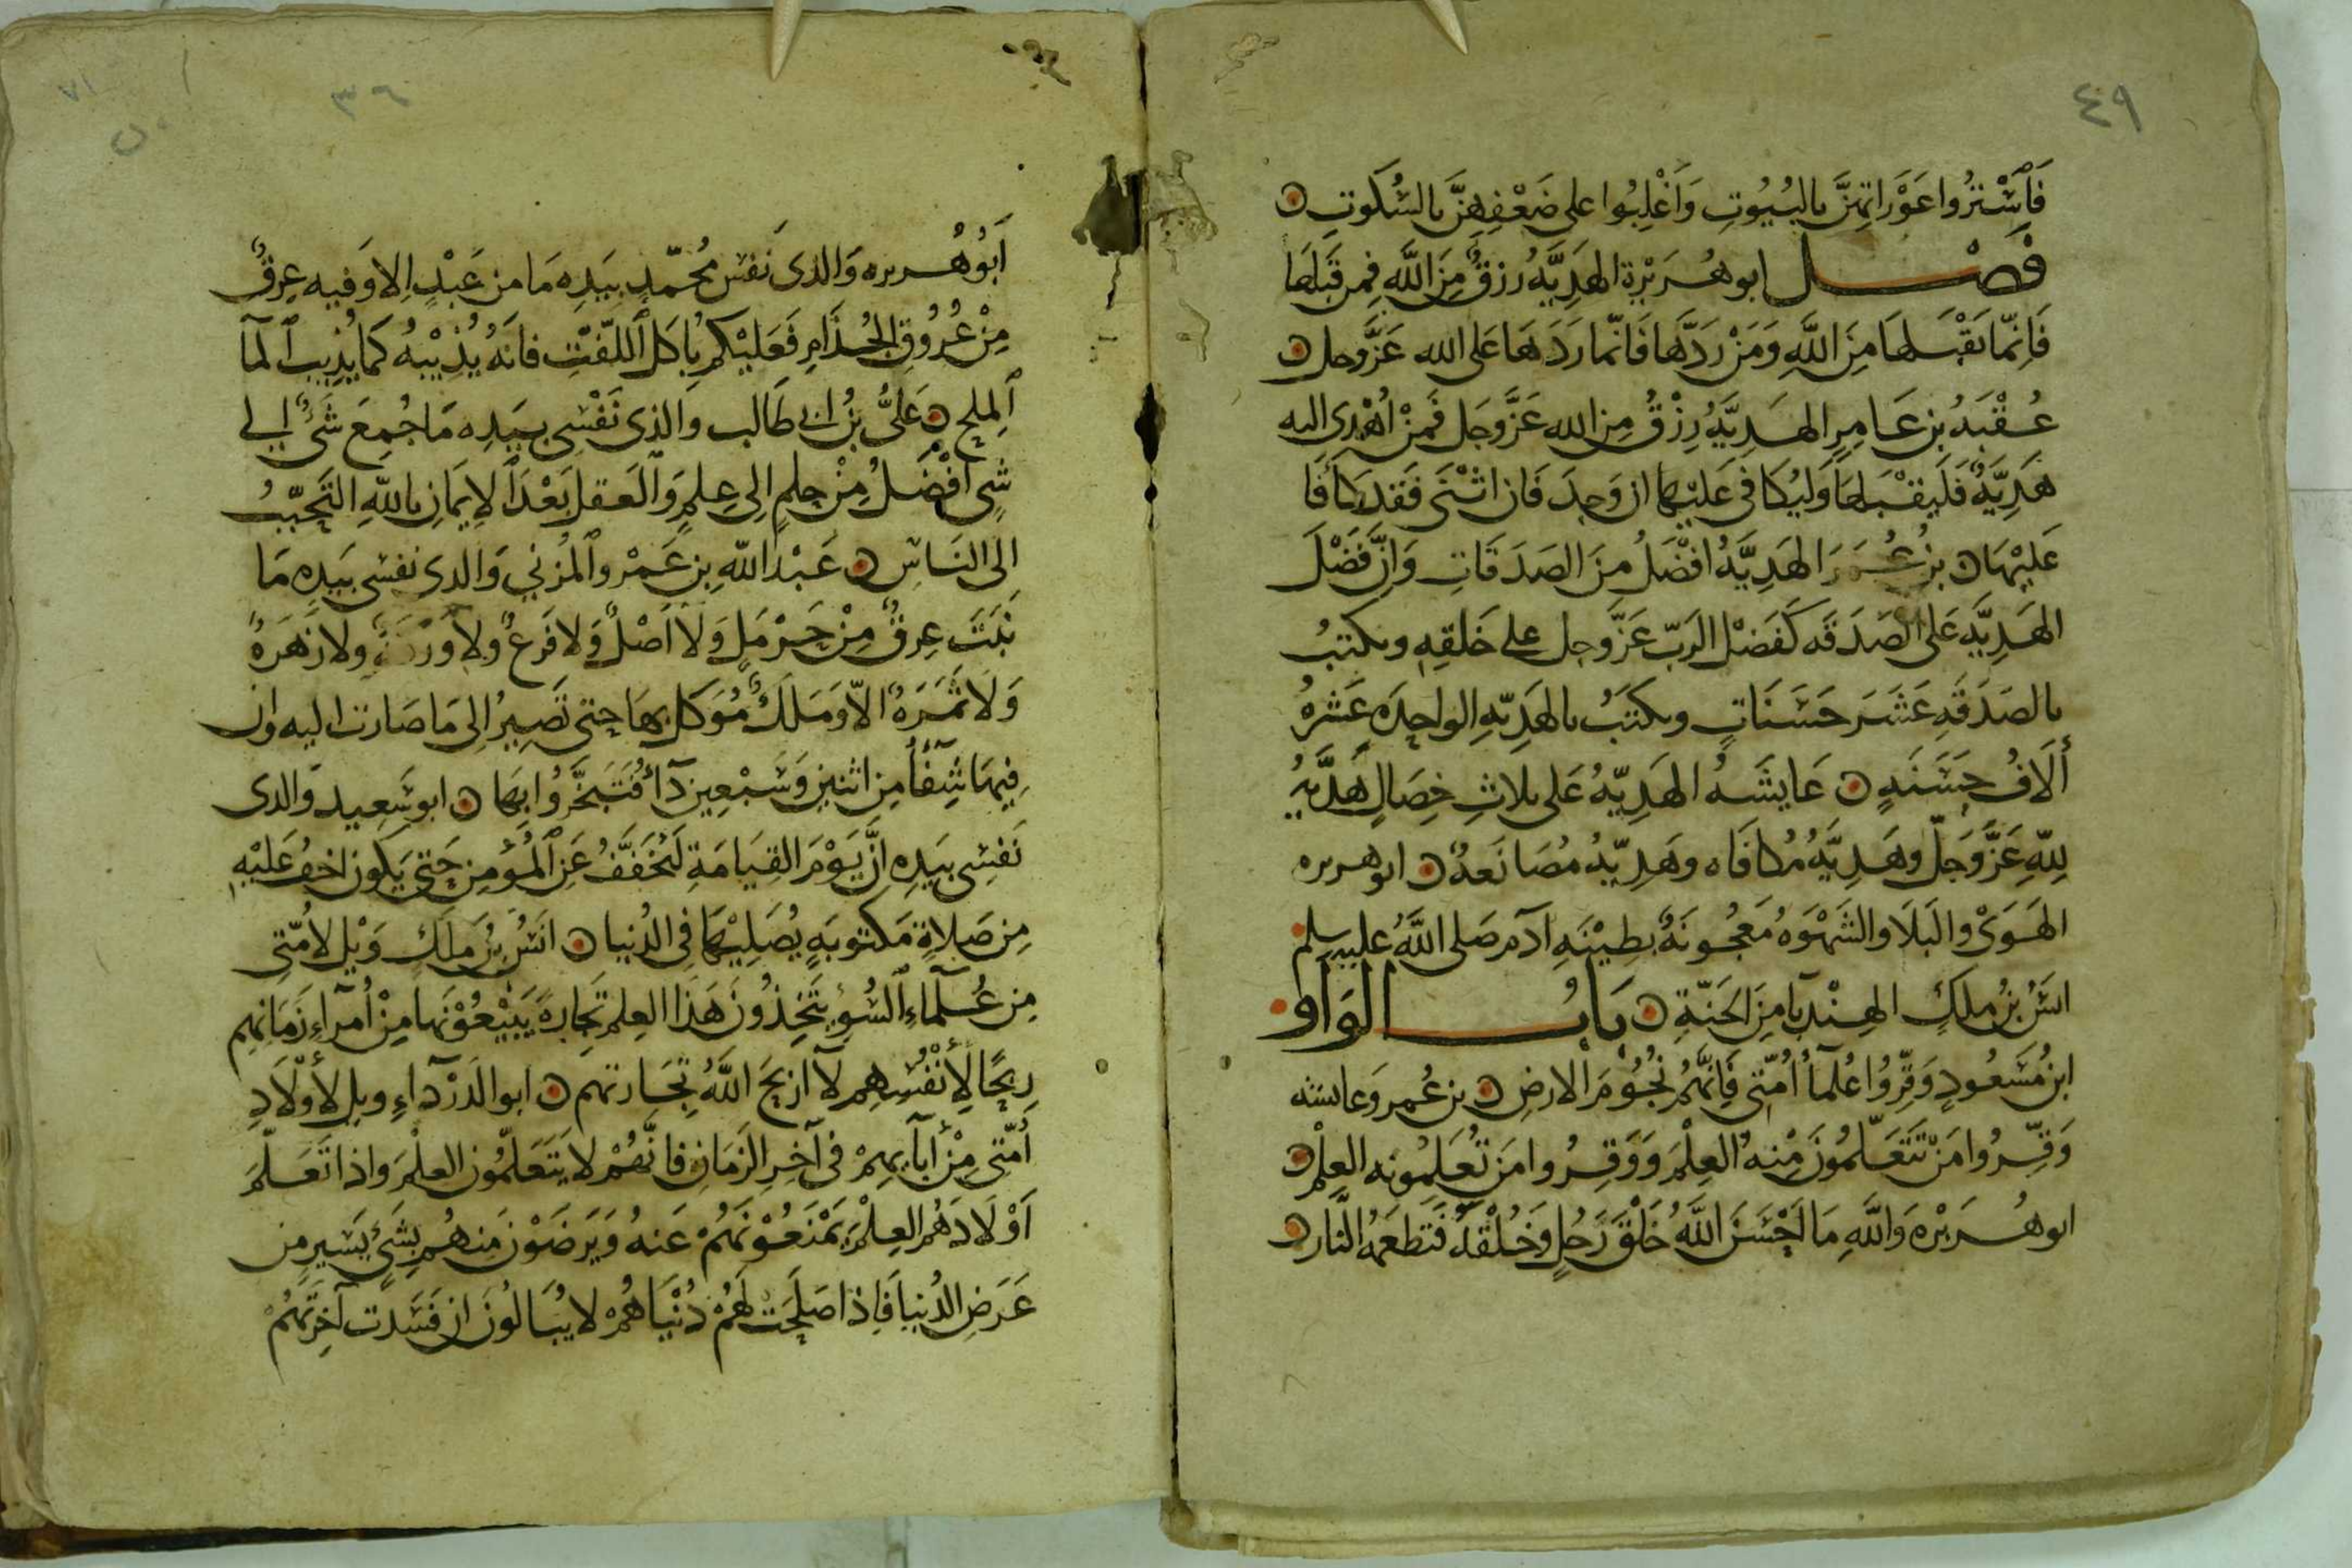 ٤٩
فَاسْتُرُوا عَوْرَاتِهِنَّ بالبُيُوتِ وَاغْلِبُوا على ضَعْفِهِنَّ بالسُّكوتِ
فَصْل ابو هُرَيْرة الهَدِيَّهُ رزقٌ مِنَ اللَّهِ فمن قَبِلَها
فَانِّما يَقْبَلهَا مِنَ اللَّهِ وَمَنْ رَدَّها فَانّما رَدَهَا عَلى الله عَزَّوجل
عُقْبَهُ بن عَامِرٍ الهَدِيَّهُ رِزْقٌ مِن الله عَزَّوجَل فَمَنْ اُهْدِى اليه
هَدِيَّهٌ فَليَقْبَلها وَليُكافى عَليْها ان وَجدَ فَان اثْنَى فَقد كَافَا
عَليْهَا بنُ عُمَرَ الهَدِيَّهُ افْضَلُ مِنَ الصَدَقَاتِ وَاِنَّ فَضْلَ
الهَدِيَّهِ عَلى الصَدَقَه كَفَضْل الرَبّ عَزَّوجل على خَلقِهِ ويكتبُ
بالصَدَقَهِ عَشَر حَسَنَاتٍ ويكتَبُ بالهَدِيّهِ الواحِدَه عَشرهُ
اَلَافُ حَسَنَهٍ عَايشَهُ الهَدِيّهُ عَلى ثلاثِ خِصَالٍ هَدِيَّهُ
لِلّهِ عَزَّوَجَلّ وهَدِيَّهُ مُكافَاه وهَدِيّهُ مُصَانَعهٌ ابو هريره
الهَوَىْ والبَلَا والشَهْوَهُ مَعجُونَهٌ بِطِيْنَهِ آدَم صَلى اللَّهُ عليه وسلم
انَسُ بنُ مٰلكٍ الهِنْدِبَا مِنَ الجَنّةِ بَابُ الوَاو
ابنُ مَسْعُودٍ وَقِّرُوا عُلَمآ اُمّتِى فَاِنَّهُمُ نُجُوْمَ الارضِ بن عُمر وعايشه
وَقِّرُوا مَنْ تَتَعَلَّمُونَ مِنْهُ العِلْمَ وَوَقِّرُوا مَن تُعَلِمُونه العِلْم
ابو هُرَيْرَه وَاللَّهِ مَا اَحْسَنَ اللَّهُ خَلْقَ رَجُلٍ وَخُلْقَهُ فَتطعَمهُ النَّار
٣٦
٧١
اَبُو هُريره وَالذى نَفس مُحمّدٍ بيَدِه مَا من عَبْدٍ اِلا وَفيه عِرقٌ
مِنْ عُرُوقِ الجُذَامِ فَعَليْكم بِاَكل اللّفتِ فانهُ يُذِيْبهُ كمَا يُذِيبُ المآ
المِلح عَلىُّ بنُ ابى طَالب وَالذى نَفْسِى بيَدِه مَا جُمِعَ شَىٌ الى
شىٍ اَفْضَلُ مِنْ حِلمٍ اِلى عِلمٍ وَالعَقل بَعْدَ الاِيمَانِ باللّهِ التَحَبّبُ
الى النَاسِ عَبْدُ اللّهِ بن عَمْرو المُزَنى وَالذى نفسى بيَدِه مَا
نَبَتَ عِرقٌ مِنْ حَرْمَلٍ وَلا اَصْلٌ وَلا فَرعٌ ولا وَرَقةٌ ولا زَهَرَهٌ
وَلَا ثَمَرَهٌ الاّ وَمَلَكٌ مُوَكل بها حتى تَصِيرُ اِلى مَا صَارت اليه وان
فِيهَا شِفَاً مِن اثنين وَسَبْعِين دَآءً فَتَبَخَّرُوا بِهَا ابو سَعِيد وَالذى
نَفسِى بيَدِه اِنَّ يَوْمَ القِيَامَةِ لَيُخَفَّفُ عَنِ المُؤمِن حَتى يَكون اخفُ عَليْهِ
مِن صَلاةٍ مَكتوبَهٍ يُصَلِيْهَا فى الدُنيا انَسُ بنُ مٰلكٍ وَيْل لامّتِى
مِن عُلَمَآءِ السُوءِ يتَخِذُونَ هَذَا العِلم تِجَارهً يَبِيْعُوْنَها مِنْ اُمَرَآءِ زَمَانهِم
رِبحًا لِأَنْفُسِهِم لا اَربحَ اللَّهُ تِجَارتهم ابو الدَرْدَآءِ ويل لأَوْلَادِ
اُمّتِى مِنْ اَبآيهِمْ فى آخِر الزَمَانِ فانَّهُمْ لا يَتَعَلّمُون العلْمَ واذا تَعَلّمَ
اَوْلَادَهُم العِلْمَ يَمْنَعُوْنَهُمْ عَنهُ وَيَرضَوْنَ مِنهُم بشَىٍ يَسِيرٍ مِن
عَرَضِ الدُنيا فَاِذا صَلحَت لَهُمْ دُنْيَاهُمْ لا يُبَالُونَ ان فَسَدت آخِرتَهُمْ